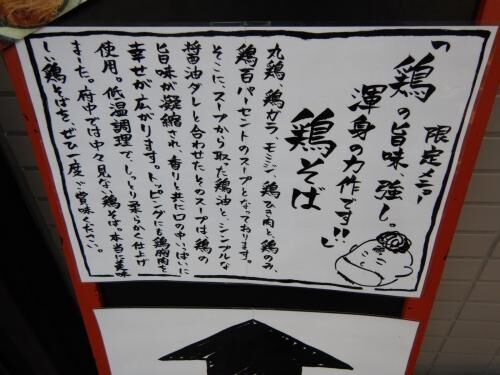 限定メニュー
「鶏の旨味強し。
渾身の力作です!!」
鶏そば
丸鶏、鶏ガラ、モミジ、鶏ひき肉と、鶏のみ、
鶏百パーセントのスープとなっております。
そこに、スープから取った鶏油と、シンプルな
醤油ダレと合わせたそのスープは鶏の
旨味が凝縮され、香りと共に口の中いっぱいに
幸せが広がります。トッピングにも鶏胸肉を
使用。低温調理で、しっとり柔らかく仕上げ
ました。府中では中々見ない鶏そば。本当に美味
しい鶏そばを、ぜひ一度ご賞味ください。